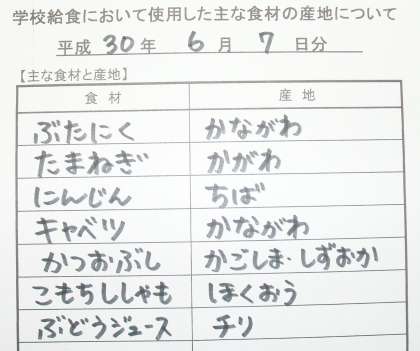 学校給食において使用した主な食材の産地について
平成 30 年 6 月 7 日分
【主な食材と産地】
食材 産地
ぶたにく かながわ
たまねぎ かがわ
にんじん ちば
キャベツ かながわ
かつおぶし かごしま・しずおか
こもちししゃも ほくおう
ぶどうジュース チリ